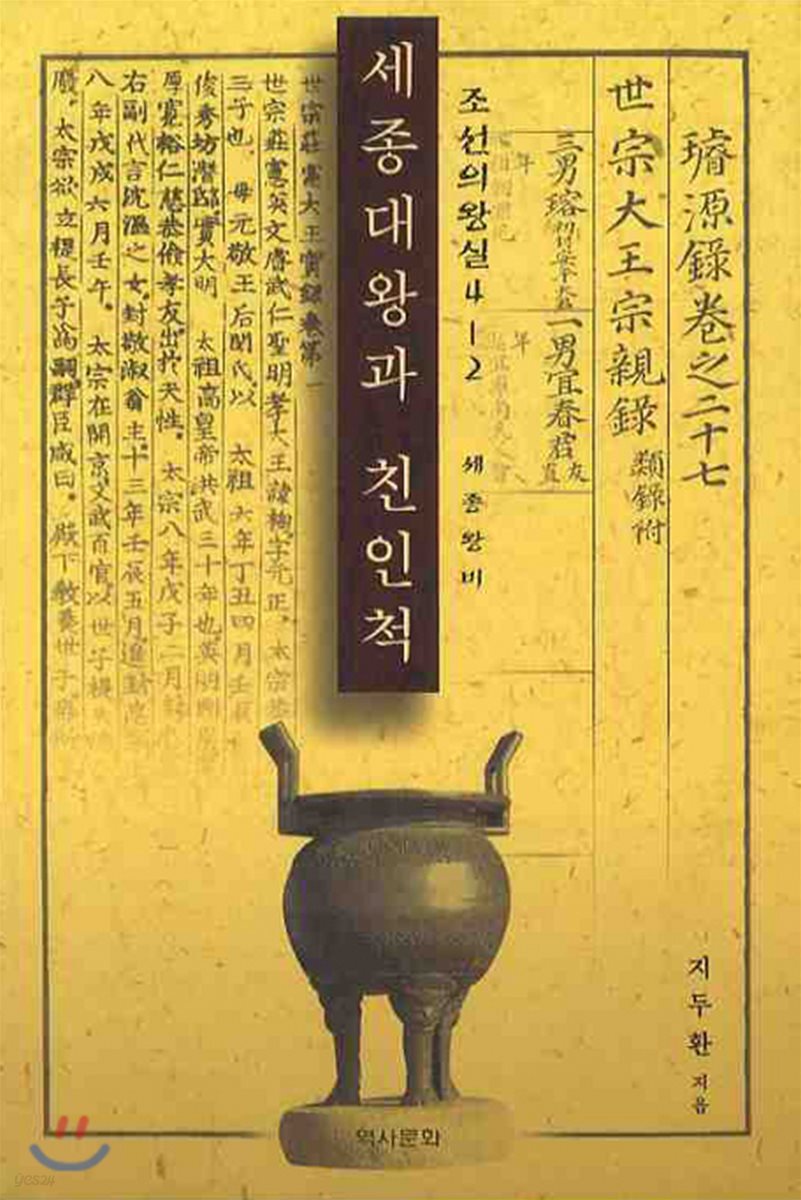 세종대왕과 친인척
조선의왕실 4-2 세종왕비
璿源錄卷之二十七
世宗大王宗親錄 類錄附
三男瑢
一男宜春君 友直
年
年
世宗莊憲大王實錄卷第一
世宗莊憲英文睿武仁聖明孝大王諱裪字元正。太宗
三子也。母元敬王后閔氏。以 太祖六年丁丑四月壬辰
俊秀坊潛邸實大明 太祖高皇帝洪武三十年也。英明剛
厚寬裕仁慈恭儉孝友。出於天性。 太宗八年戊子二月
右副代言沈溫之女。封敬淑翁主。十三年壬辰五月。進封忠
八年戊戌六月壬午。 太宗在開京文武百官。以世子禔
廢。太宗欲立禔長子爲嗣。群臣咸曰。殿下敎養世子
지두환 지음
역사문화
yes24